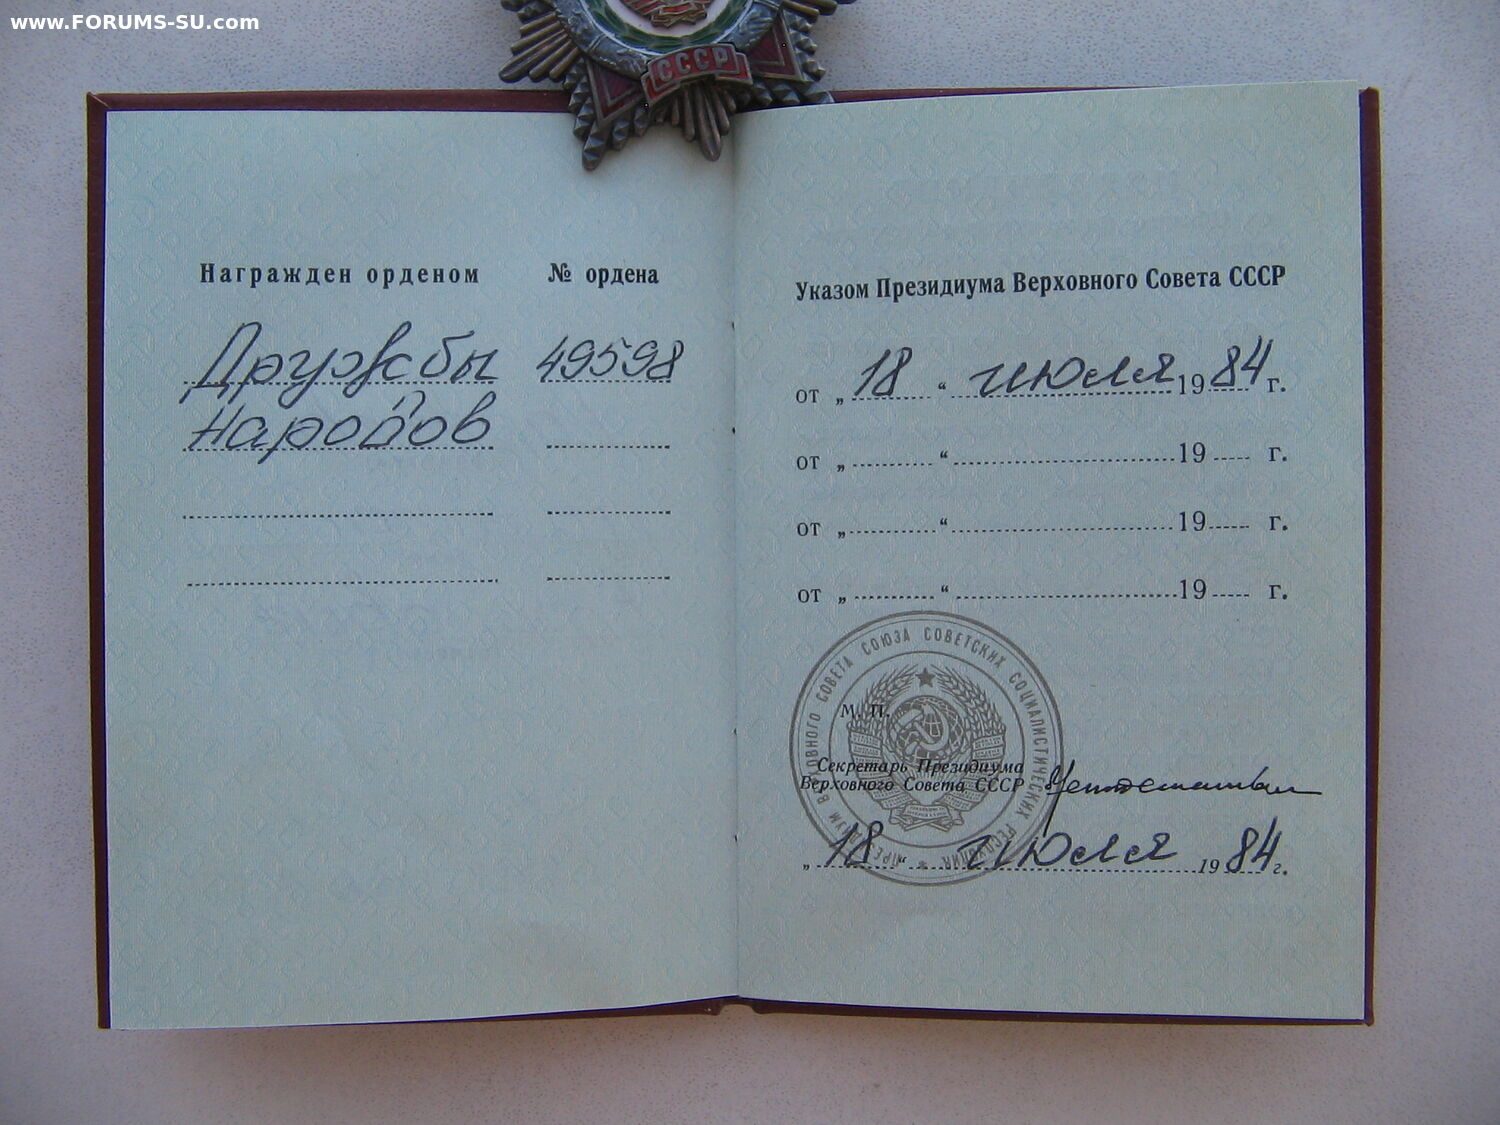 www.FORUMS-SU.com
СССР
Награжден орденом № ордена
Дружбы 49598
Народов
Указом Президиума Верховного Совета СССР
от „ 18 “ июля 1984 г.
от „ “ 19 г.
от „ “ 19 г.
от „ “ 19 г.
ПРЕЗИДИУМ ВЕРХОВНОГО СОВЕТА СОЮЗА СОВЕТСКИХ СОЦИАЛИСТИЧЕСКИХ РЕСПУБЛИК
М. П.
Секретарь Президиума
Верховного Совета СССР
„ 18 “ июля 1984 г.